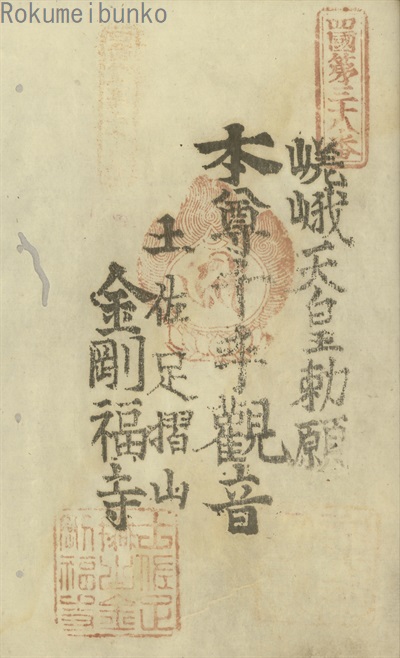 Rokumeibunko
四國第三十八番
嵯峨天皇勅願
本尊千手觀音
土佐足摺山
金剛福寺